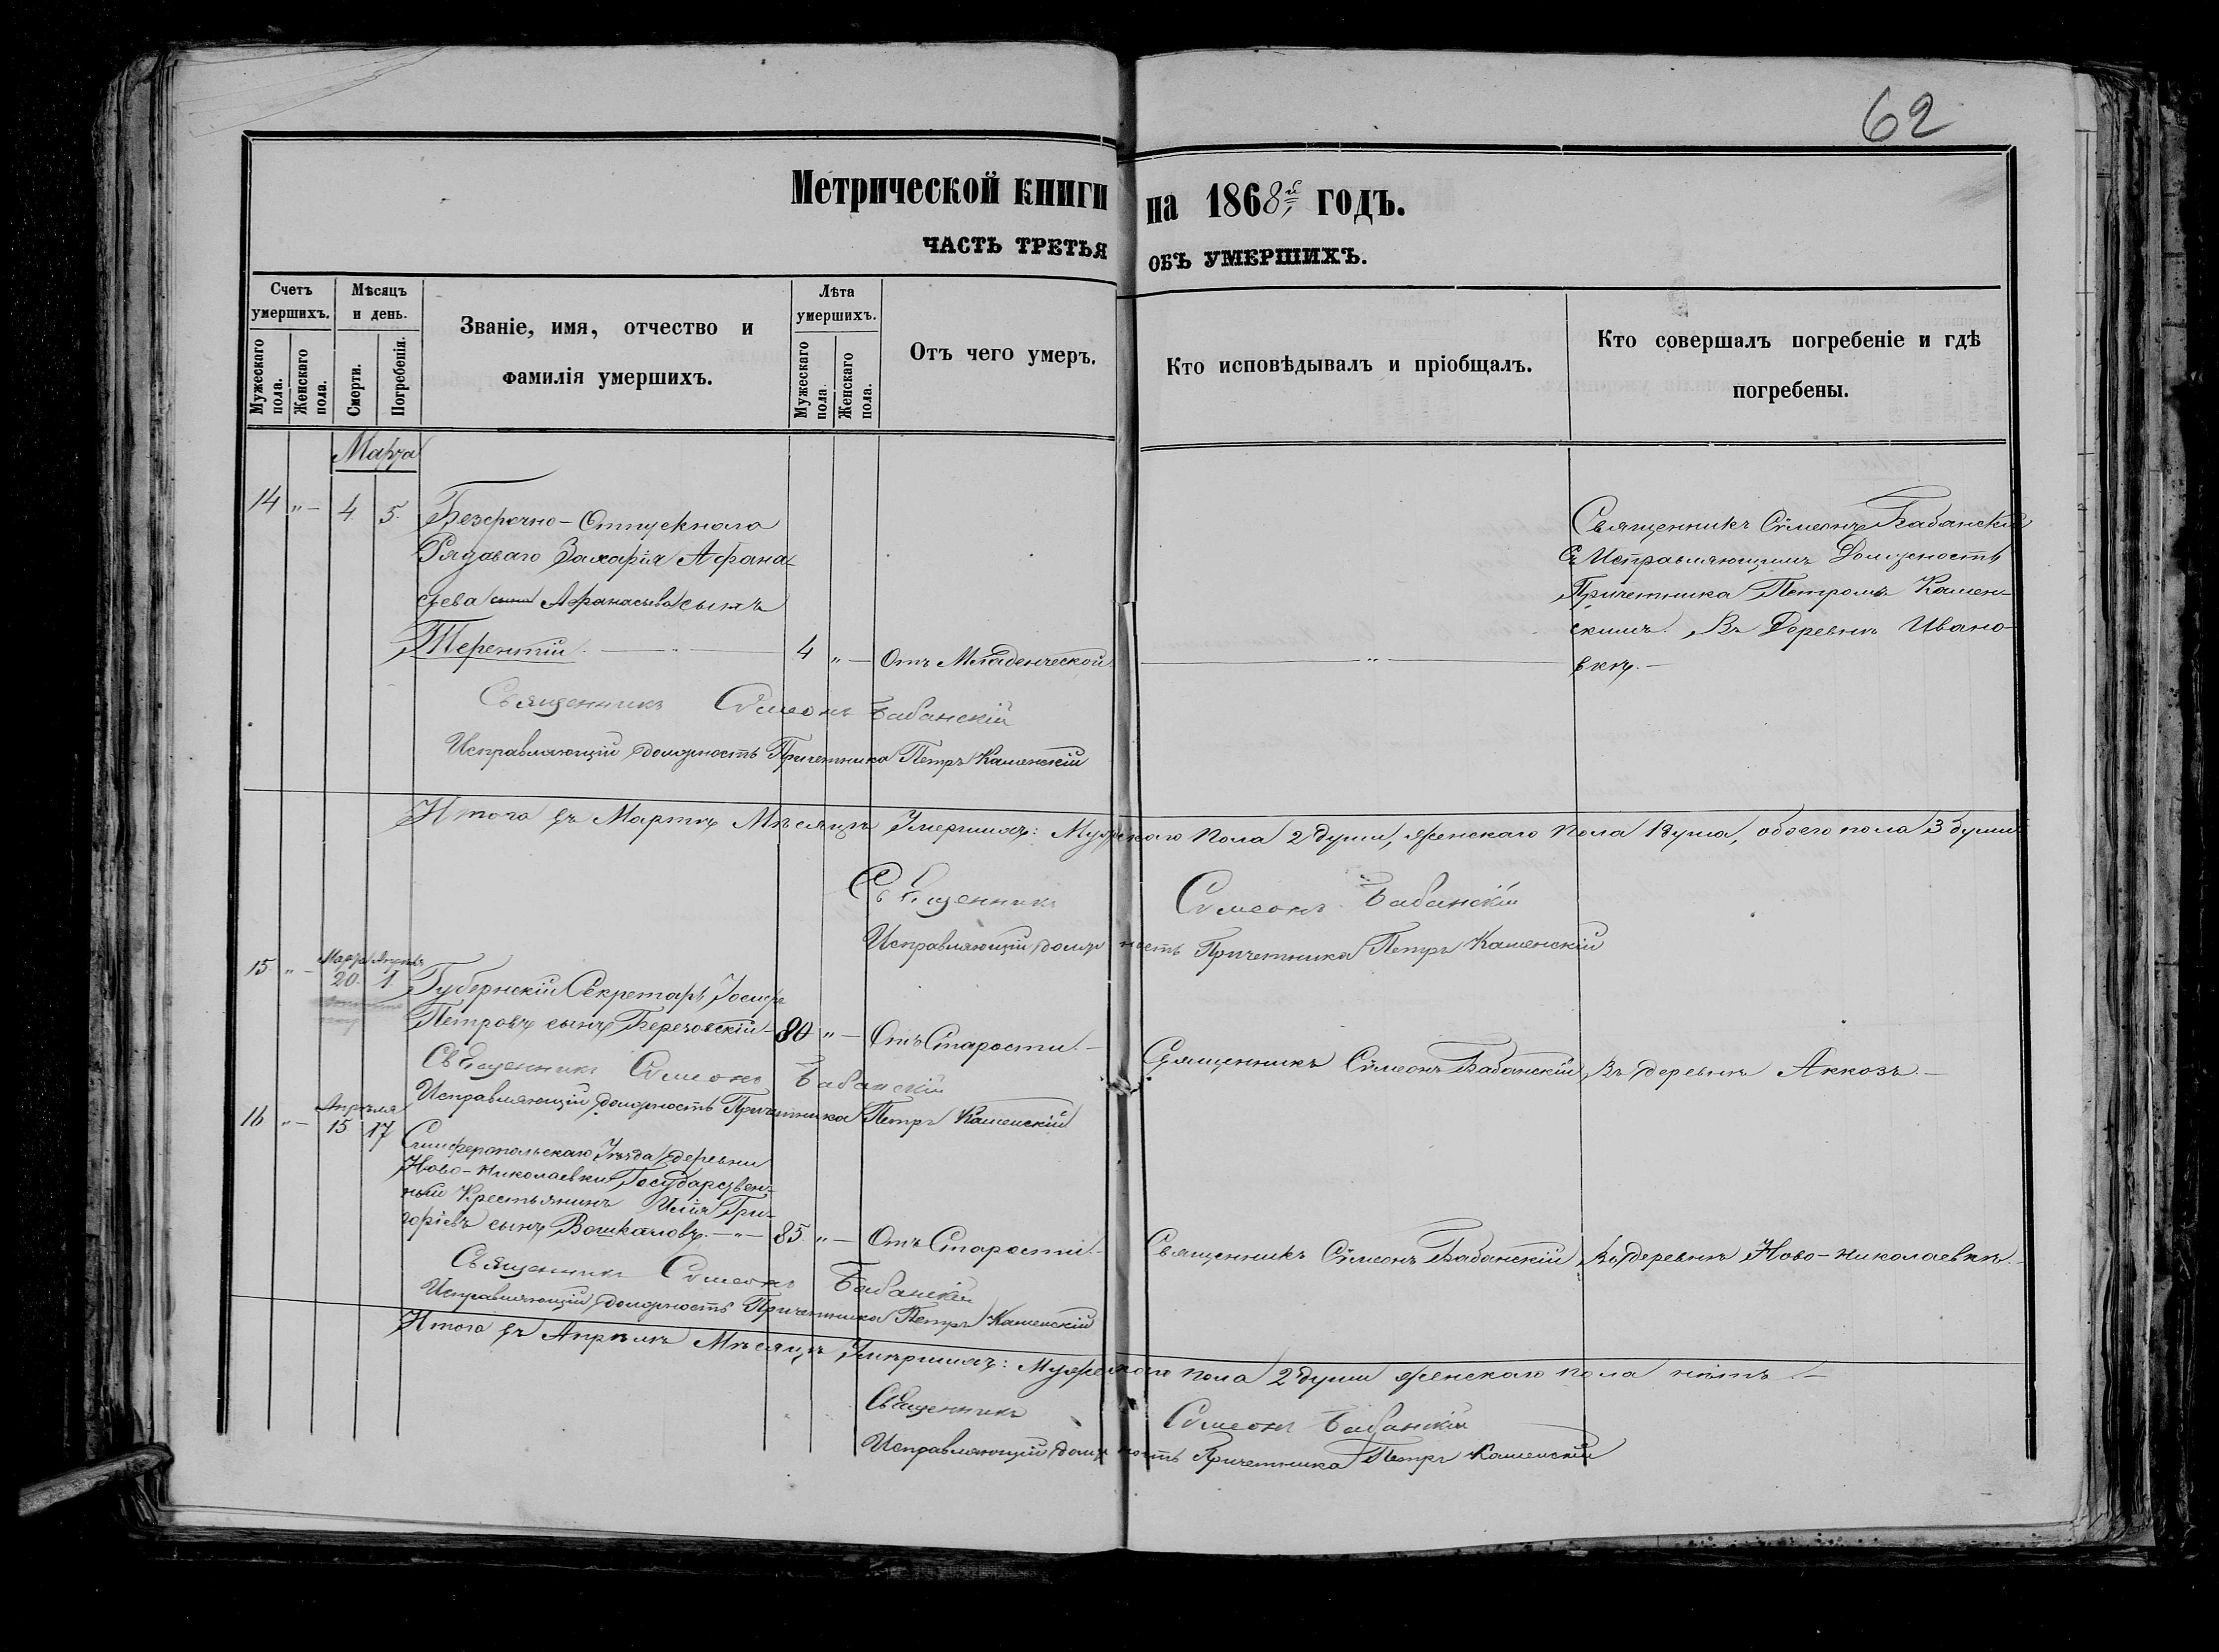 62
Метрической книги на 1868й годъ.
ЧАСТЬ ТРЕТЬЯ ОБЪ УМЕРШИХЪ.
Счетъ умершихъ.
Мужескаго пола.
Женскаго пола.
Мѣсяцъ и день.
Смерти.
Погребенія.
Званіе, имя, отчество и
фамилія умершихъ.
Лѣта умершихъ.
Мужескаго пола.
Женскаго пола.
Отъ чего умеръ.
Кто исповѣдывалъ и пріобщалъ.
Кто совершалъ погребеніе и гдѣ
погребены.
Марта
14 „ — 4. 5. Безсрочно-Отпускнаго
Рядоваго Захарія Афана-
сьева сына Афанасьева сынъ
Терентій. — „ — 4 „ — Отъ Младенческой — „ —
Священникъ Сѵмеонъ Бабанскій
съ Исправляющимъ Должность
Причетника Петромъ Камен-
скимъ. Въ Деревнѣ Ивано-
вкѣ. —
Священникъ Сѵмеонъ Бабанскій
Исправляющій должность Причетника Петръ Каменскій
Итого въ Мартѣ Мѣсяцѣ Умершихъ: Мужескаго пола 2 души, женскаго пола 1 душа, обоего пола 3 души
Священникъ Сѵмеонъ Бабанскій
Исправляющій должность Причетника Петръ Каменскій
Марта Апрѣль
15. „ — 20. 1. Губернскій Секретарь Іосифъ
Петровъ сынъ Березовскій — 80 „ — Отъ Старости. — Священникъ Сѵмеонъ Бабанскій Въ деревнѣ Аккозъ. —
Священникъ Сѵмеонъ Бабанскій
Исправляющій должность Причетника Петръ Каменскій
Апрѣля
16 „ — 15 17 Симферопольскаго Уѣзда деревни
Ново-Николаевки Государствен-
ный Крестьянинъ Илія Гри-
горіевъ сынъ Вошкаловъ. — „ — 85. „ — Отъ Старости. — Священникъ Сѵмеонъ Бабанскій Въ деревнѣ Ново-Николаевкѣ. —
Священникъ Сѵмеонъ Бабанскій
Исправляющій должность Причетника Петръ Каменскій
Итого въ Апрѣлѣ Мѣсяцѣ Умершихъ: Мужескаго пола 2 души женскаго пола нѣтъ. —
Священникъ Сѵмеонъ Бабанскій
Исправляющій должность Причетника Петръ Каменскій